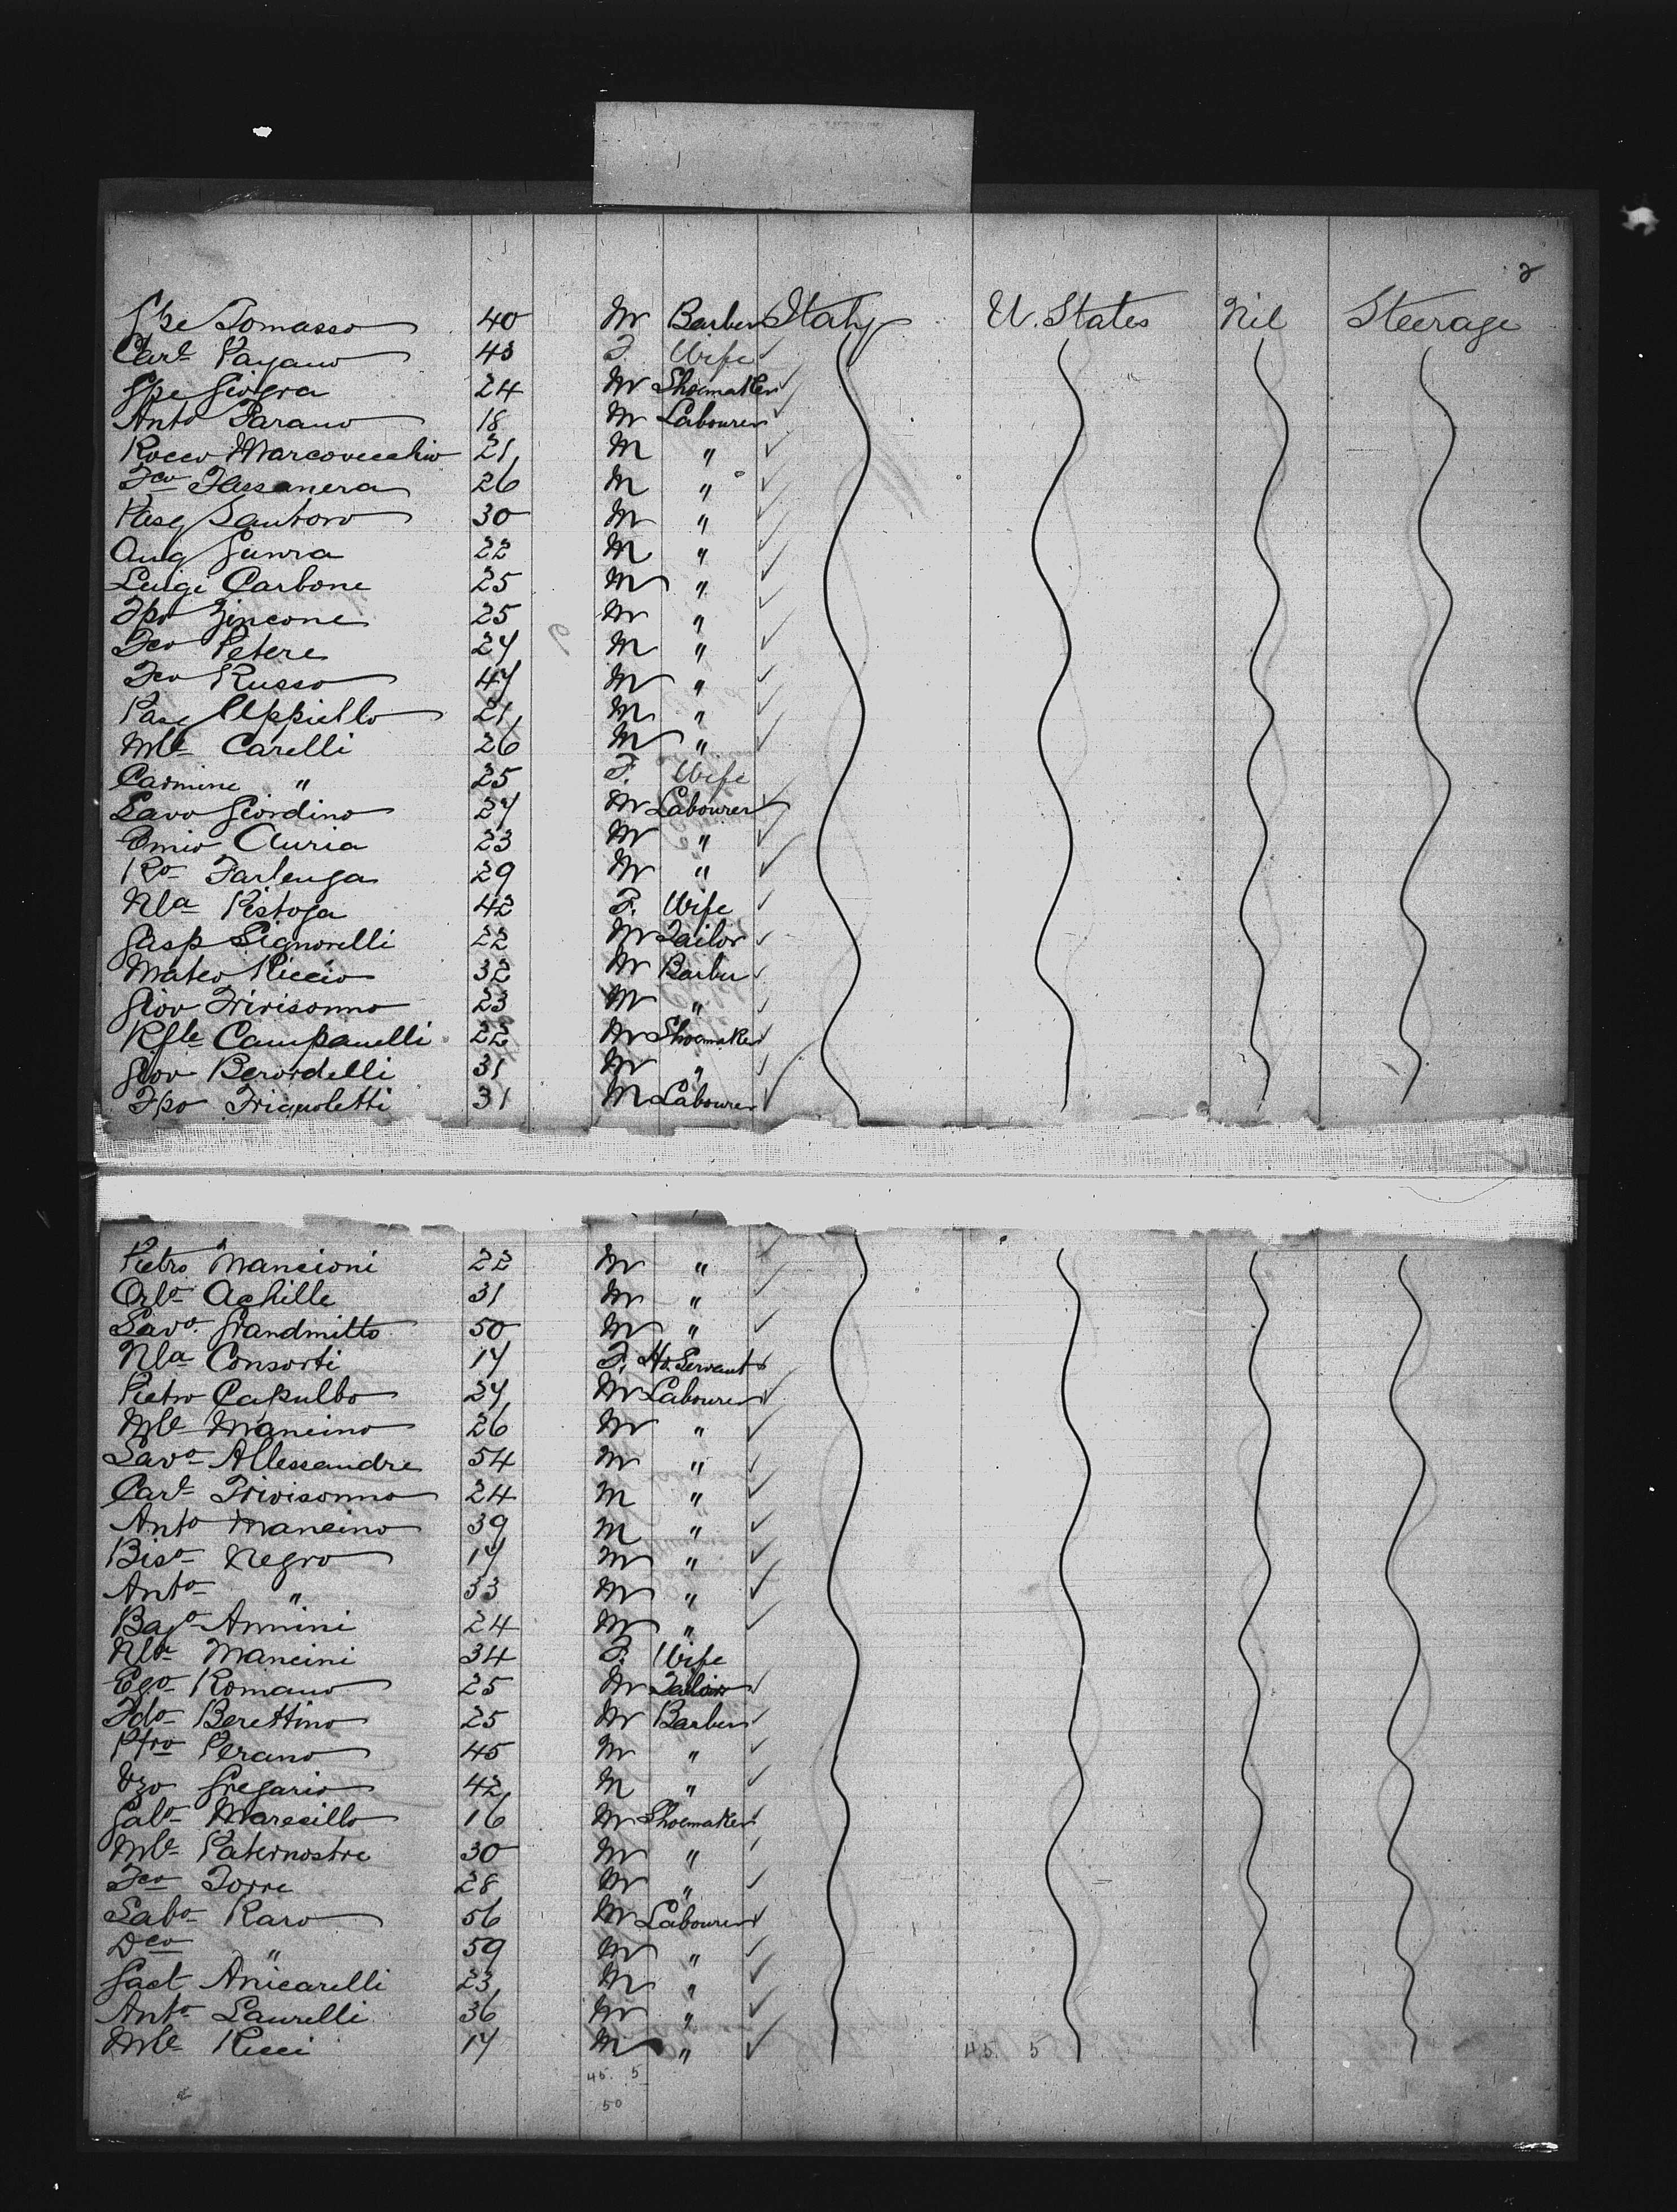 2
Gpe Tomasso 40 M Barber Italy U. States Nil Steerage
Carl Pagano 43 F. Wife
Gpe Giogra 24 M Shoemaker
Anto Farano 18 M Labourer
Rocco Marcovecchio 21 M "
Fco Fassanera 26 M "
Pasq Santoro 30 M "
Aug Gunra 22 M "
Luigi Carbone 25 M "
Fpo Zincone 25 M "
Fco Petere 27 M "
Fco Russo 47 M "
Pasq Uppiello 21 M "
Mle Carelli 26 M "
Carmine " 25 F. Wife
Savo Giordino 27 M Labourer
Emio Auria 23 M "
Ro Farlenga 29 M "
Nla Pistoja 42 F. Wife
Gasp Signorelli 22 M Tailor
Mateo Riccio 32 M Barber
Giov Trivisonno 23 M "
Rfle Campanelli 22 M Shoemaker
Giov Berordelli 31 M "
Fpo Frignoletti 31 M Labourer
Pietro Mancioni 22 M "
Orlo Achille 31 M "
Savo Grandmitto 50 M "
Nla Consorti 17 F. Ho. Servant
Pietro Capulbo 27 M Labourer
Mle Mancino 26 M "
Savo Allessandre 54 M "
Carl Trivisonno 24 M "
Anto Mancino 39 M "
Biso Negro 17 M "
Anto " 33 M "
Bago Annini 24 M "
Nla Mancini 34 F. Wife
Ego Romano 25 M Tailor
Fdo Berettino 25 M Barber
Pfro Perano 45 M "
Vzo Gregario 42 M "
Galo Marecillo 16 M Shoemaker
Mle Paternostre 30 M "
Fco Torre 28 M "
Sabo Raro 56 M Labourer
Dco " 59 M "
Gaet Anicarelli 23 M "
Anto Laurelli 36 M "
Mle Ricci 17 M "
45 5
45. 5
50